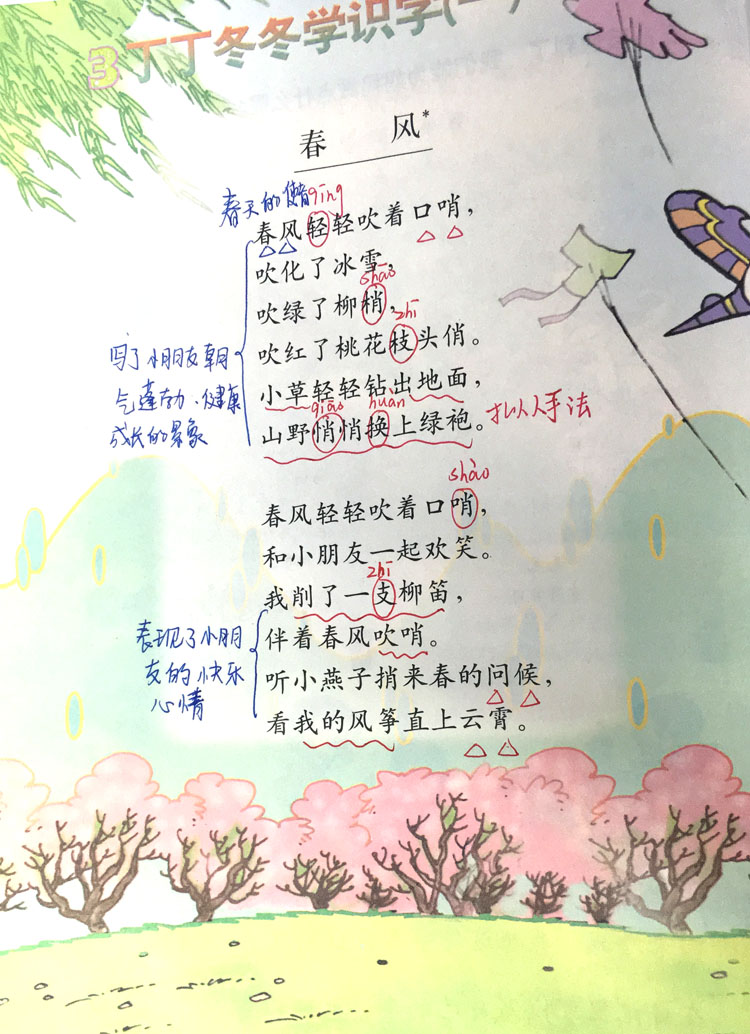 3 丁丁冬冬学识字(一)
春 风*
春天的使者 qīng
春风轻轻吹着口哨,
吹化了冰雪,
shāo
吹绿了柳梢,
zhī
吹红了桃花枝头俏。
写了小朋友朝
气蓬勃、健康
成长的景象
小草轻轻钻出地面,
qiāo huàn
山野悄悄换上绿袍。
拟人手法
shào
春风轻轻吹着口哨,
和小朋友一起欢笑。
zhī
我削了一支柳笛,
伴着春风吹哨。
表现了小朋
友的快乐
心情
听小燕子捎来春的问候,
看我的风筝直上云霄。